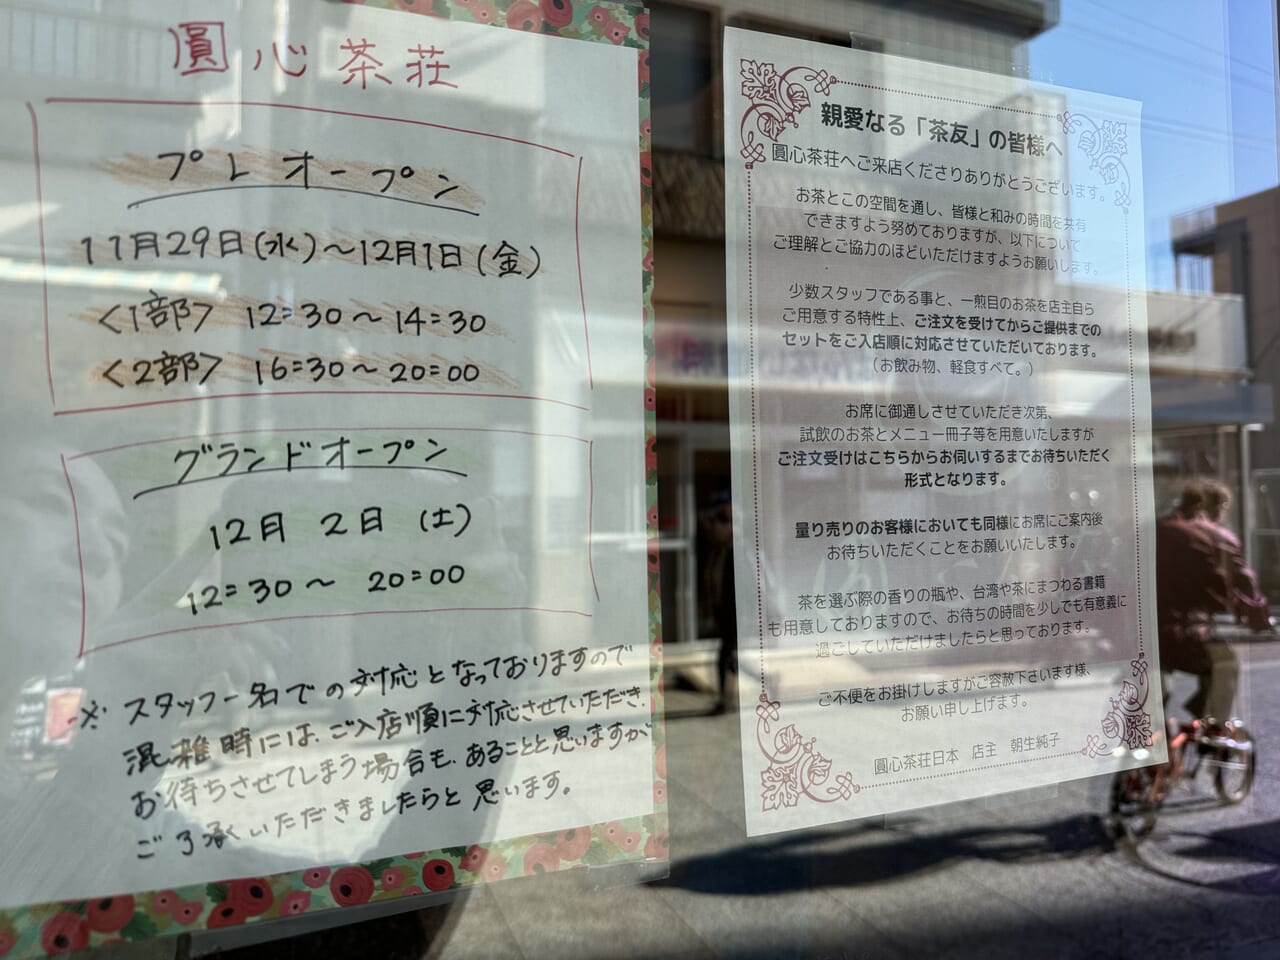 圓心茶荘
プレオープン
11月29日(水)～12月1日(金)
<1部> 12:30～14:30
<2部> 16:30～20:00
グランドオープン
12月 2日 (土)
12:30～ 20:00
※スタッフ一名での対応となっておりますので
混雑時には、ご入店順に対応させていただき、
お待ちさせてしまう場合も、あることと思いますが
ご了承いただきましたらと思います。
親愛なる「茶友」の皆様へ
圓心茶荘へご来店くださりありがとうございます。
お茶とこの空間を通し、皆様と和みの時間を共有
できますよう努めておりますが、以下について
ご理解とご協力のほどいただけますようお願いします。
少数スタッフである事と、一煎目のお茶を店主自ら
ご用意する特性上、ご注文を受けてからご提供までの
セットをご入店順に対応させていただいております。
（お飲み物、軽食すべて。）
お席に御通しさせていただき次第、
試飲のお茶とメニュー冊子等を用意いたしますが
ご注文受けはこちらからお伺いするまでお待ちいただく
形式となります。
量り売りのお客様においても同様にお席にご案内後
お待ちいただくことをお願いいたします。
茶を選ぶ際の香りの瓶や、台湾や茶にまつわる書籍
も用意しておりますので、お待ちの時間を少しでも有意義に
過ごしていただけましたらと思っております。
ご不便をお掛けしますがご容赦下さいます様、
お願い申し上げます。
圓心茶荘日本 店主 朝生純子